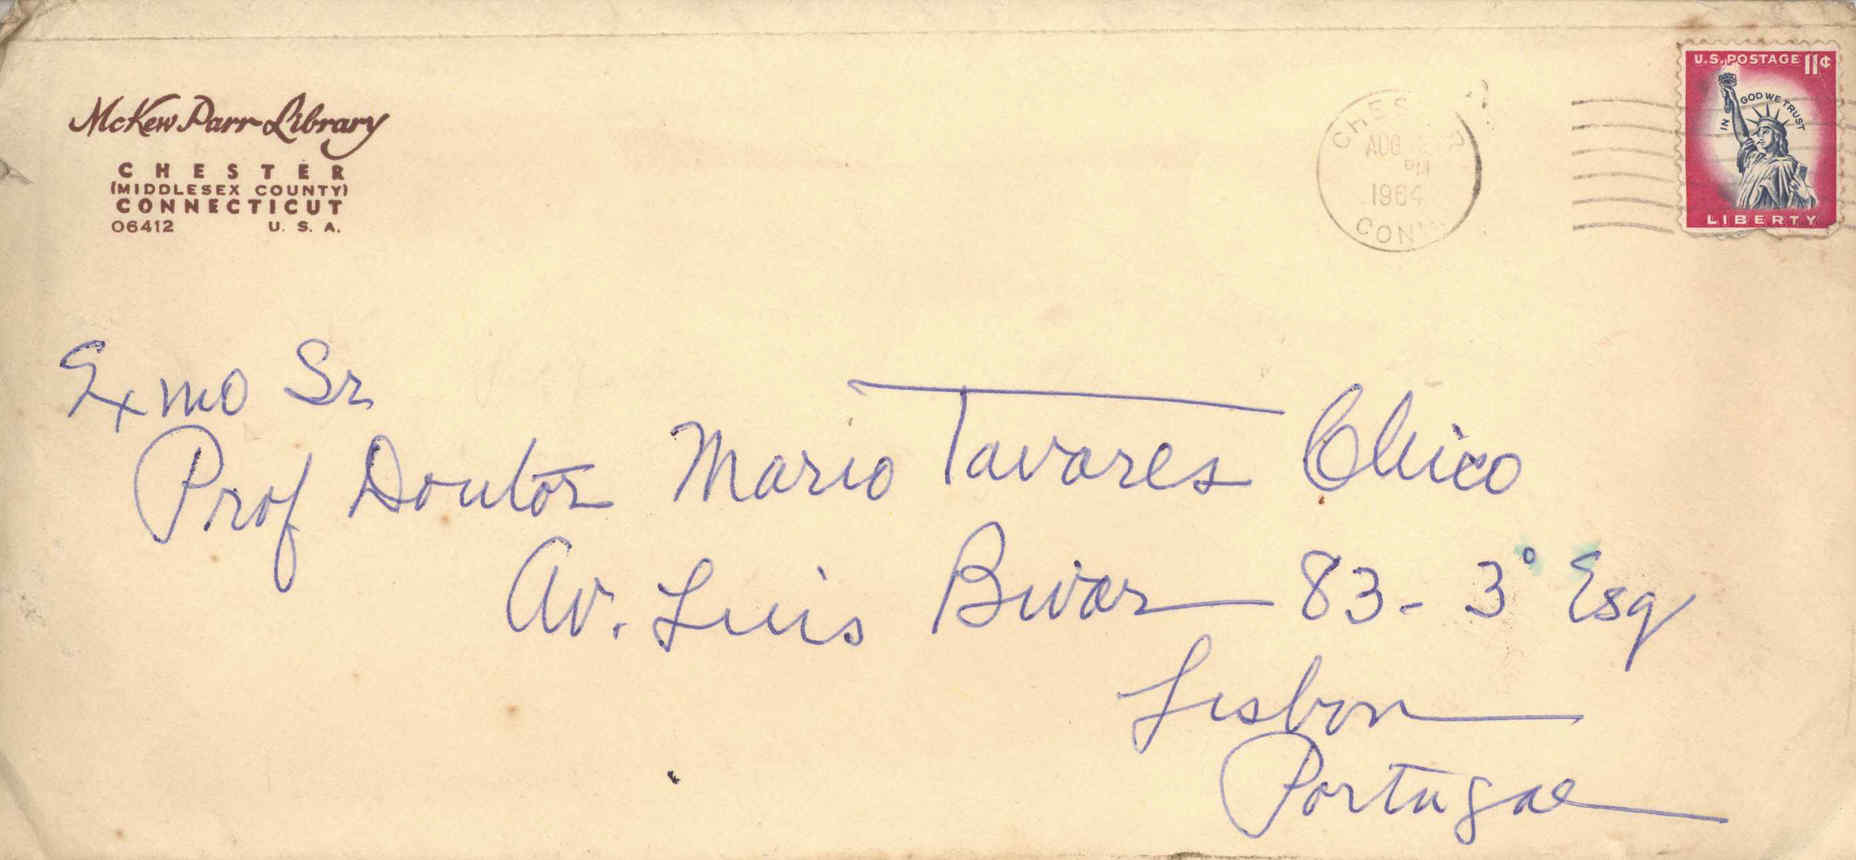 McKew Parr Library
CHESTER
(MIDDLESEX COUNTY)
CONNECTICUT
06412 U. S. A.
CHESTER
AUG
PM
1964
CONN
U.S. POSTAGE 11¢
IN GOD WE TRUST
LIBERTY
Exmo Sr
Prof Doutor Mario Tavares Chico
Av. Luis Bivar 83 - 3° Esq
Lisbon
Portugal